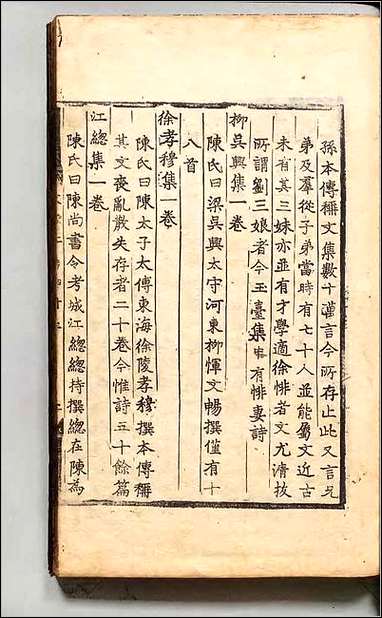 孫本傳稱文集數十萬言今所存止此又言兄
弟及羣從子弟當時有七十人並能屬文近古
未有其三妹亦並有才學適徐悱者文尤清拔
所謂劉三娘者今玉臺集中有悱妻詩
柳吳興集一卷
陳氏曰梁吳興太守河東柳惲文暢撰僅有十
八首
徐孝穆集一卷
陳氏曰陳太子太傅東海徐陵孝穆撰本傳稱
其文喪亂散失存者二十卷今惟詩五十餘篇
江總集一卷
陳氏曰陳尚書令考城江總總持撰總在陳為